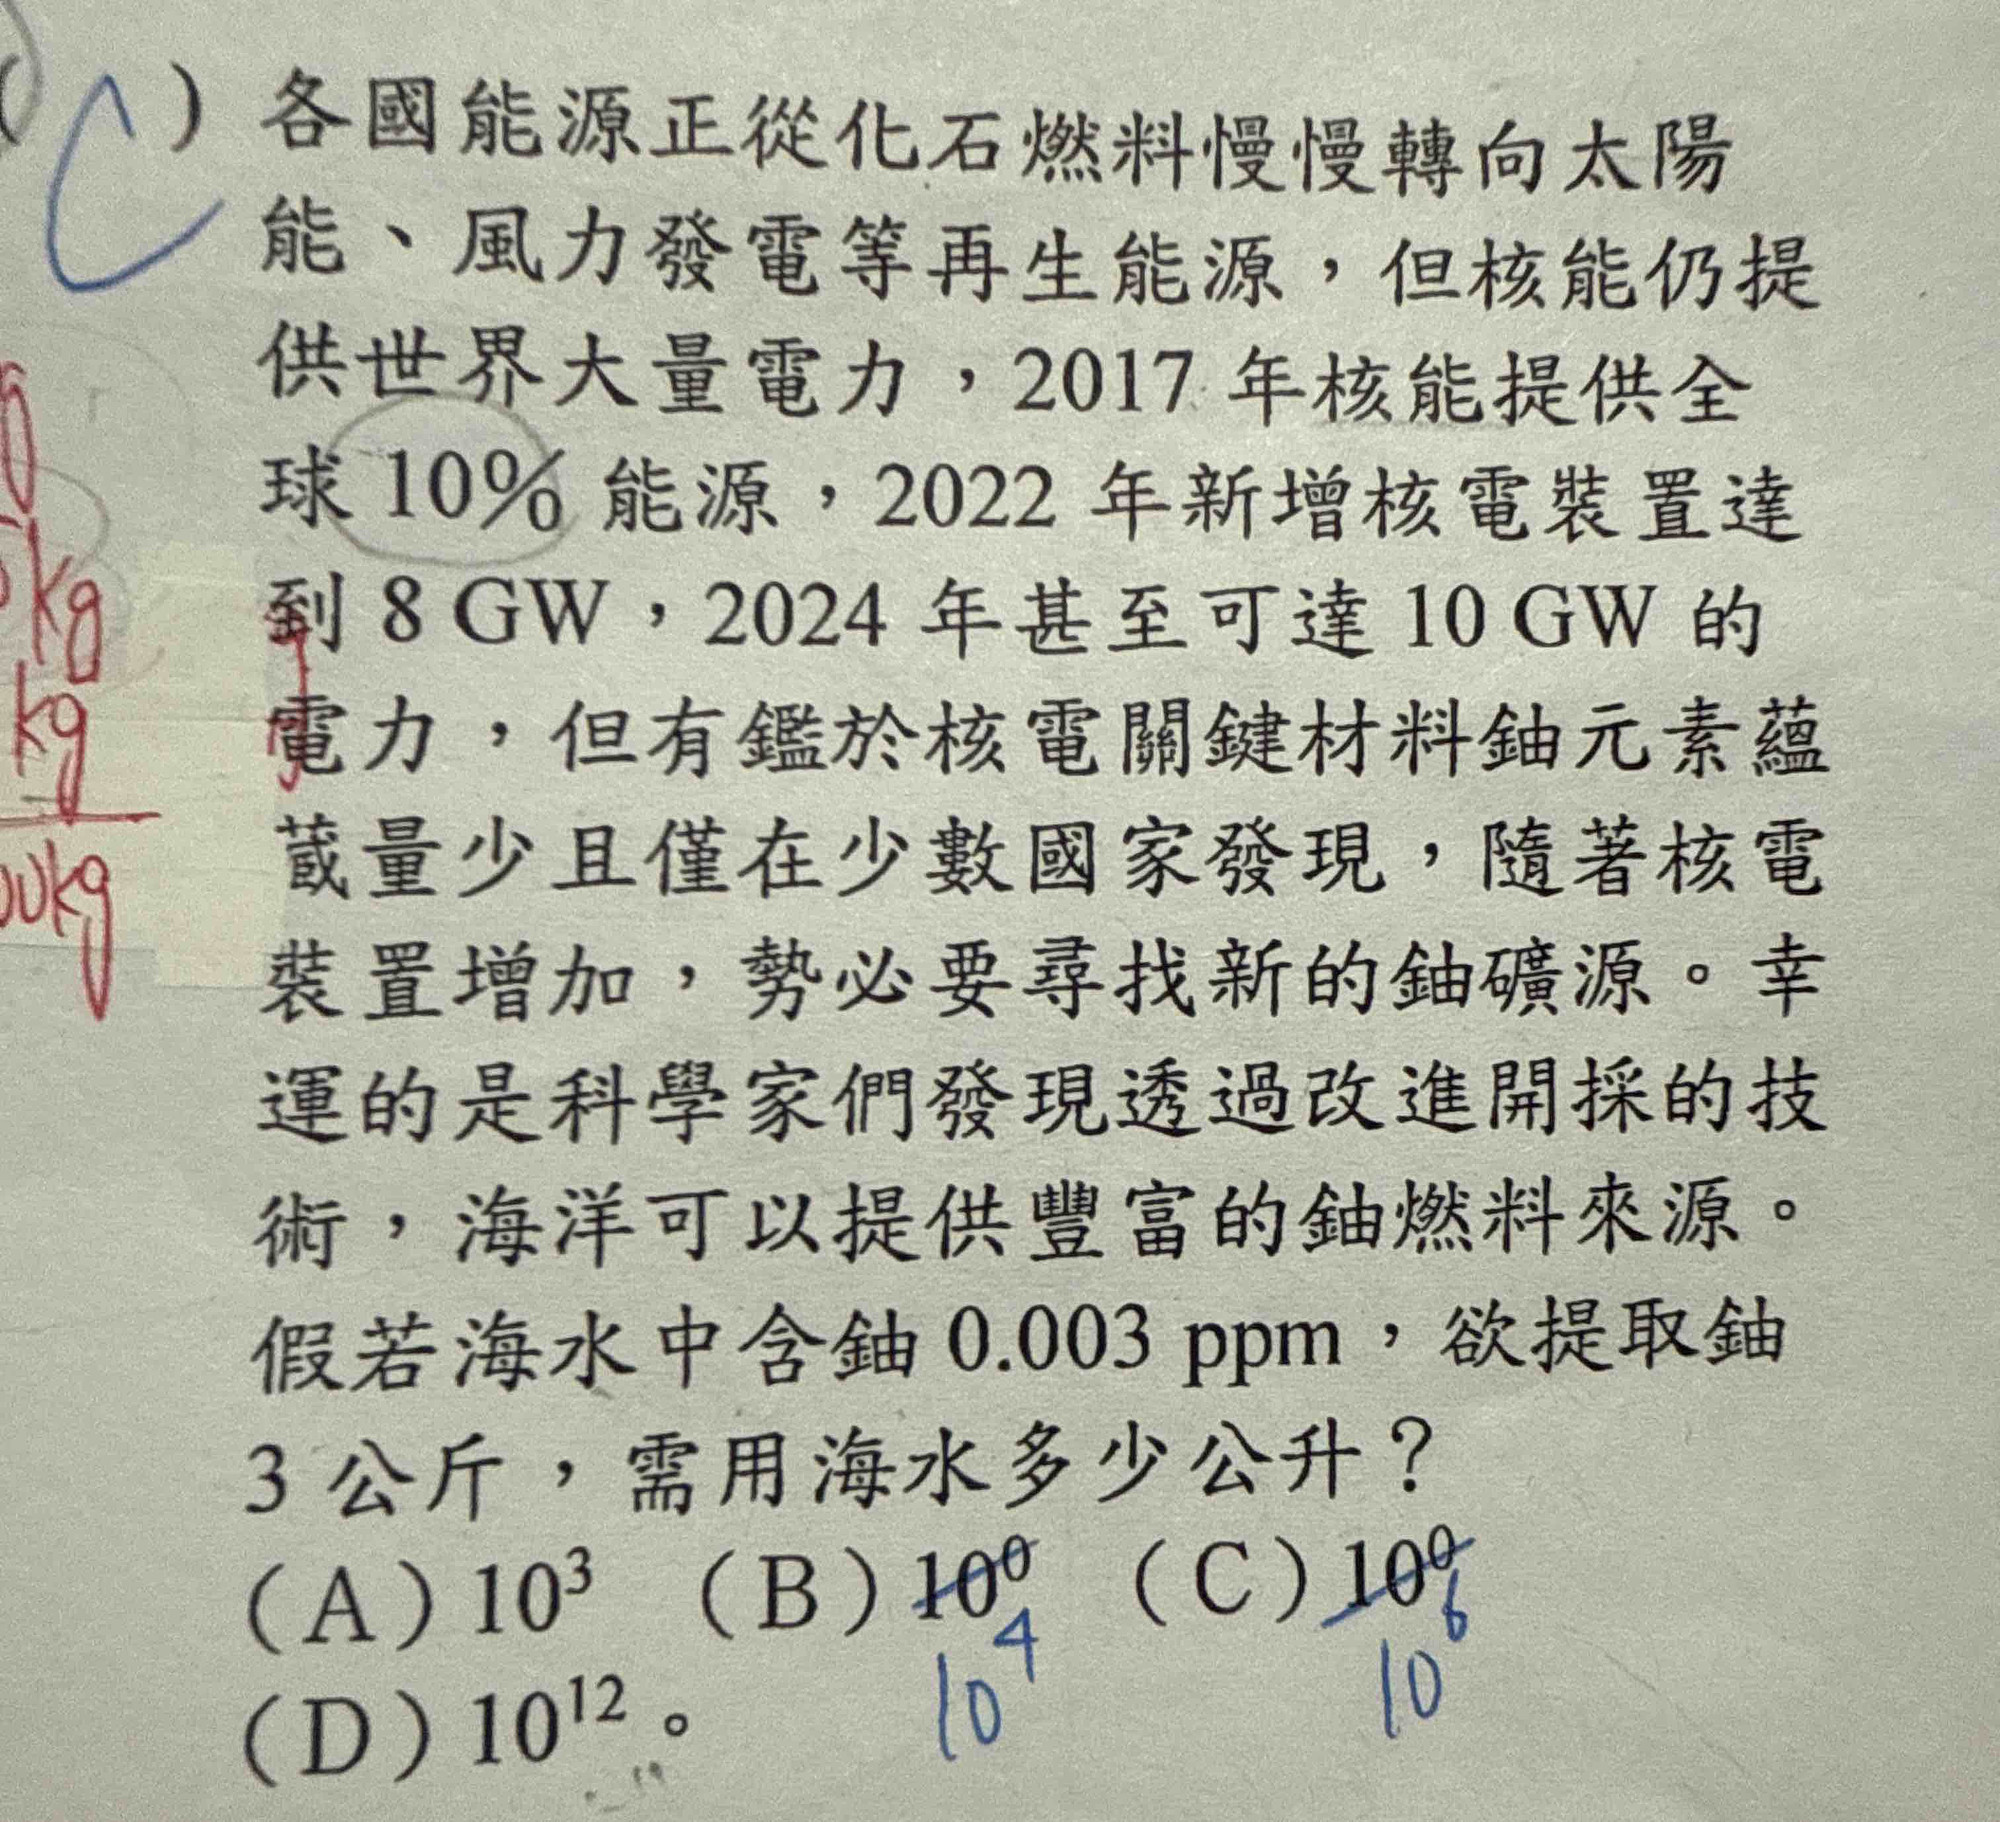 (C) 各國能源正從化石燃料慢慢轉向太陽
能、風力發電等再生能源，但核能仍提
供世界大量電力，2017 年核能提供全
球 10% 能源，2022 年新增核電裝置達
到 8 GW，2024 年甚至可達 10 GW 的
電力，但有鑑於核電關鍵材料鈾元素蘊
蕆量少且僅在少數國家發現，隨著核電
裝置增加，勢必要尋找新的鈾礦源。幸
運的是科學家們發現透過改進開採的技
術，海洋可以提供豐富的鈾燃料來源。
假若海水中含鈾 0.003 ppm，欲提取鈾
3 公斤，需用海水多少公升？
(A) 10³ (B) 10⁰ (C) 10⁰
10⁴ 10⁶
(D) 10¹²。
kg
kg
kg